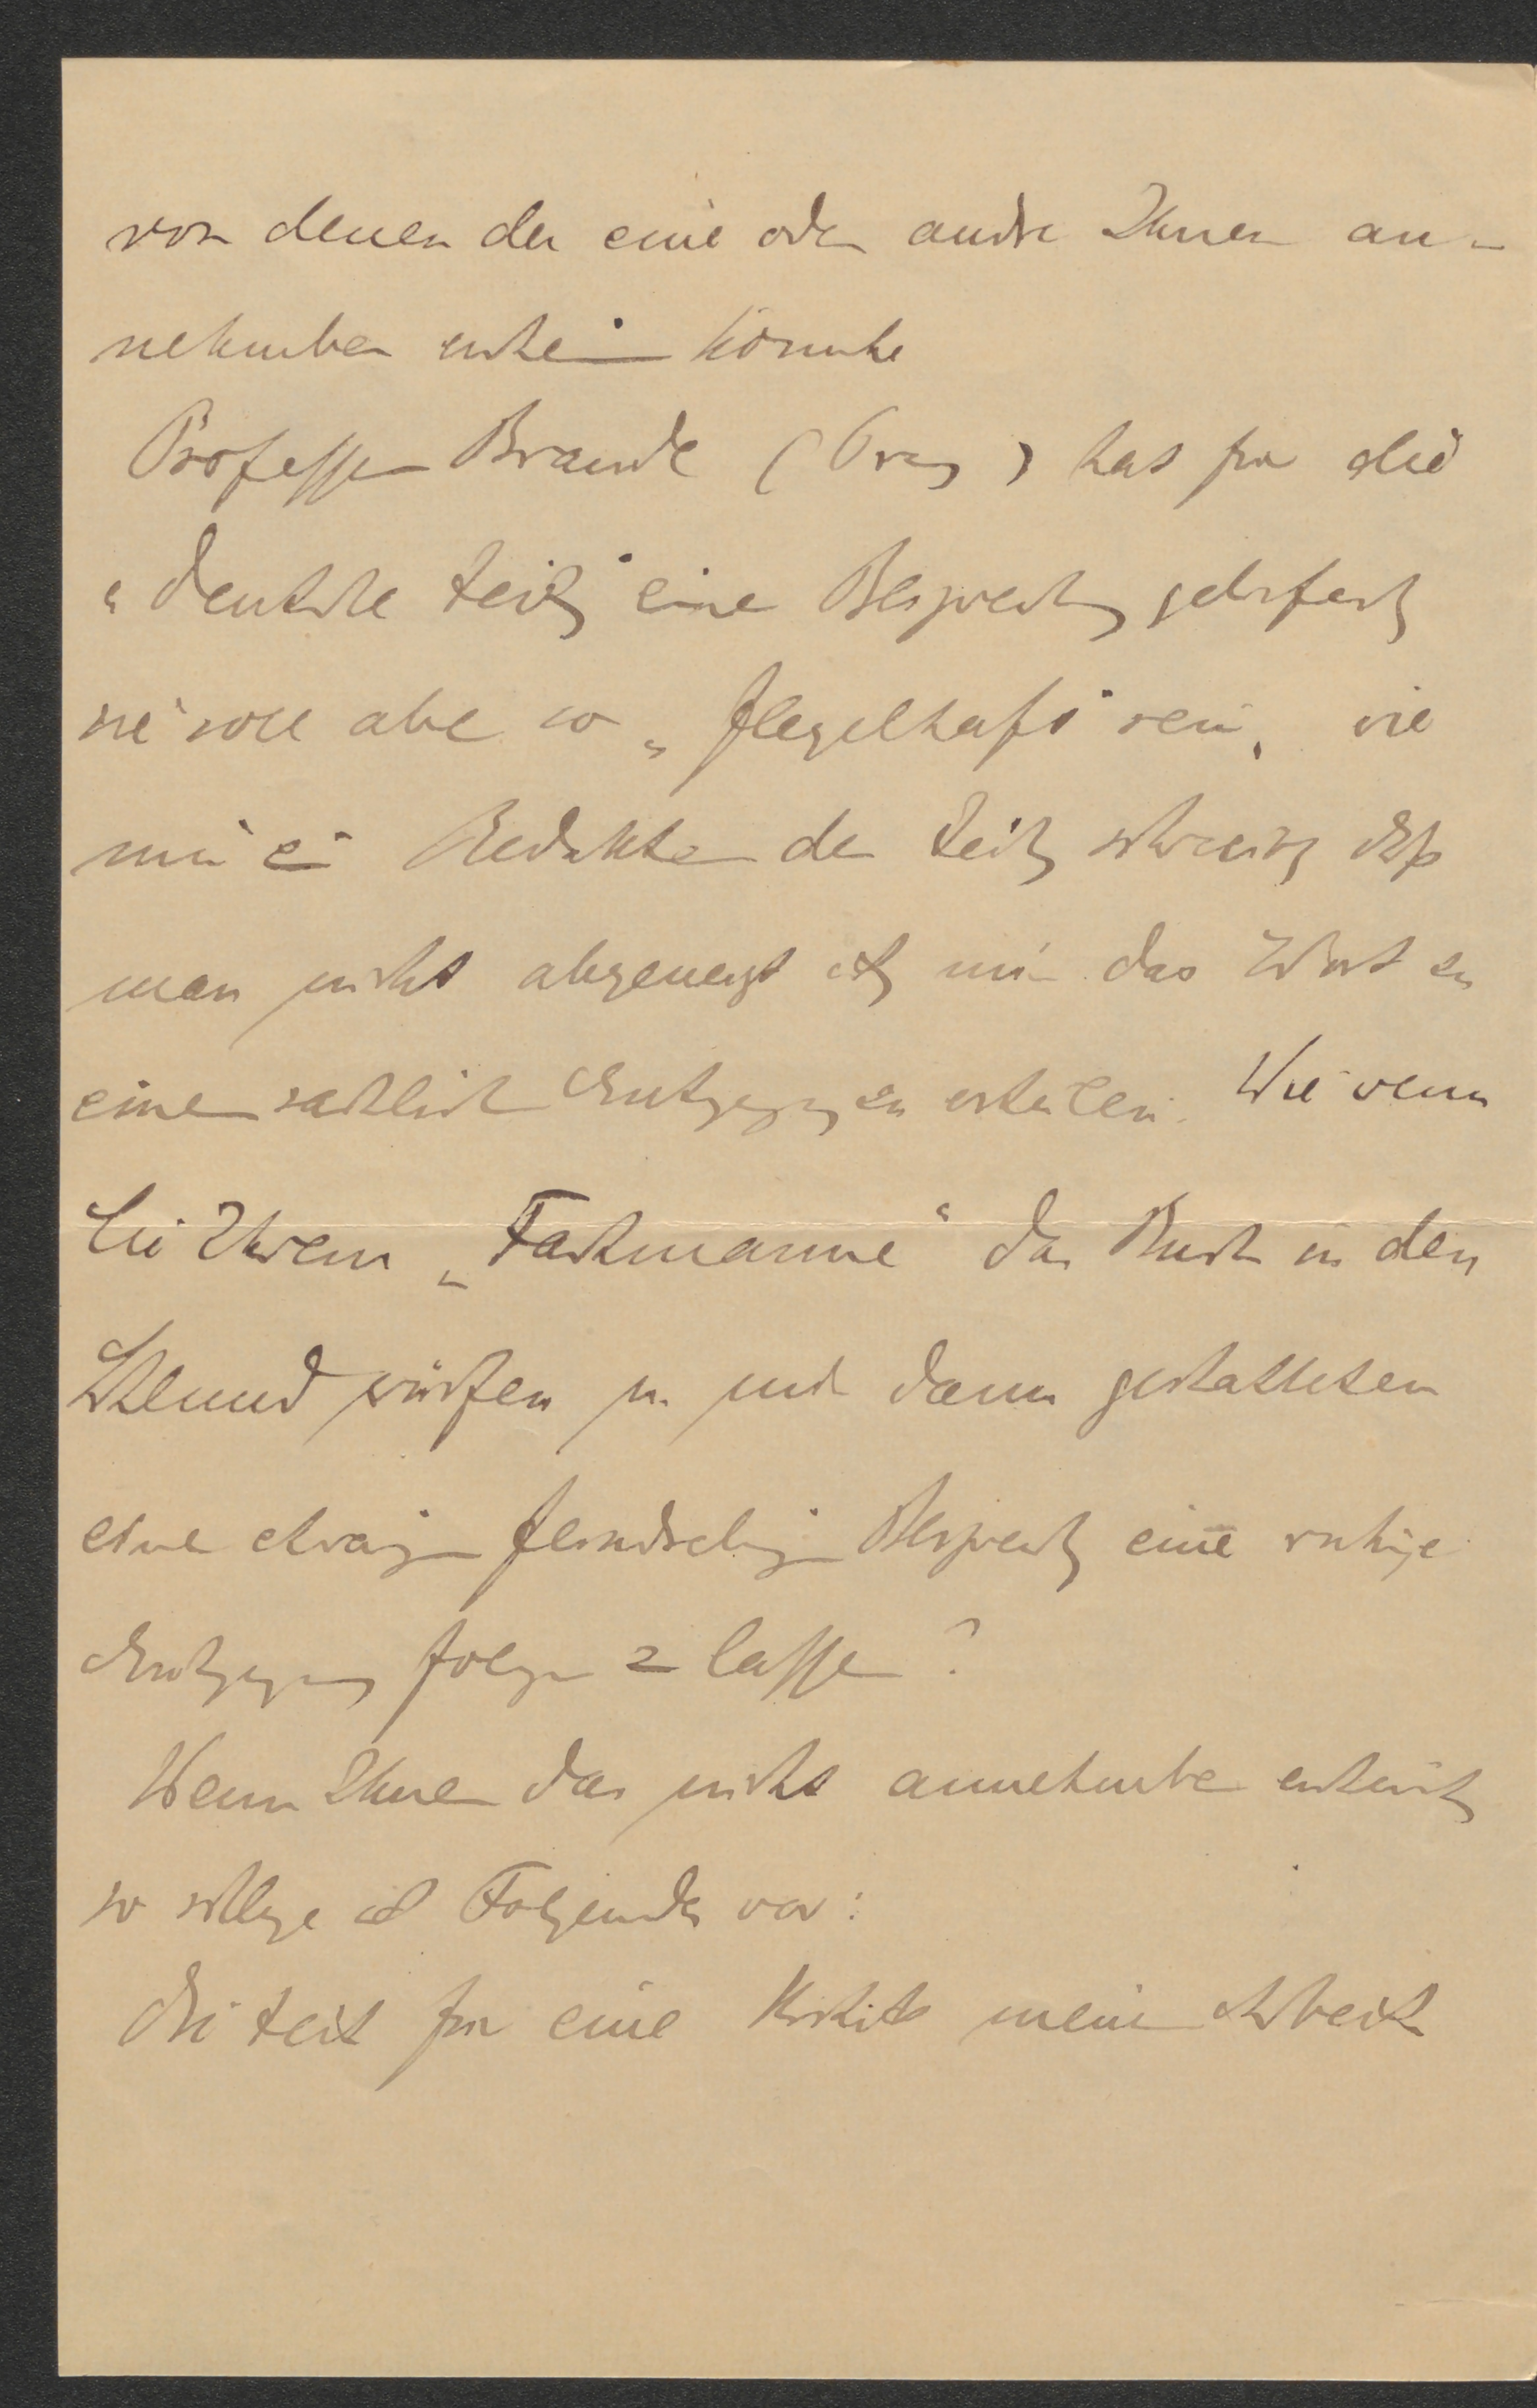 von denen der eine oder andre Ihnen an-
nehmbar erscheinen könnte
Professor Brande (Graz) hat für die
„Deutsche Zeitg" eine Besprechung geliefert
sie soll aber so „flegelhaft" sein, wie
mir ein Redakteur der Zeitg schreibt, daß
man nicht abgeneigt ist, mir das Wort zu
einer sachlichen Entgegnung zu erteilen. Wie wenn
Sie Ihrem „Fachmanne" das Buch in den
Schlund würfen u. mich dann gestatteten
eine etwaigen feindseligen Besprechg eine ruhige
Entgegnung folgen z lassen?
Wenn Ihnen das nicht annehmbar erscheint
so schlage ich Folgendes vor:
Die Zeit für eine Kritik meiner Arbeit